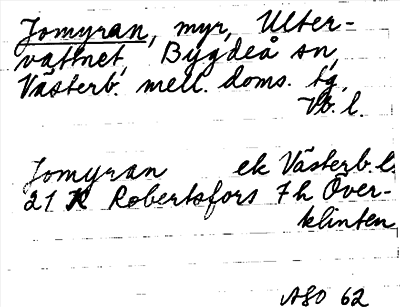 Jomyran, myr, Ulter-
vattnet, Bygdeå sn,
Västerb. mell. doms. tg,
Vb. l.
Jomyran ek Västerb. l.
21 K Robertsfors 7h Över-
klinten
ASO 62